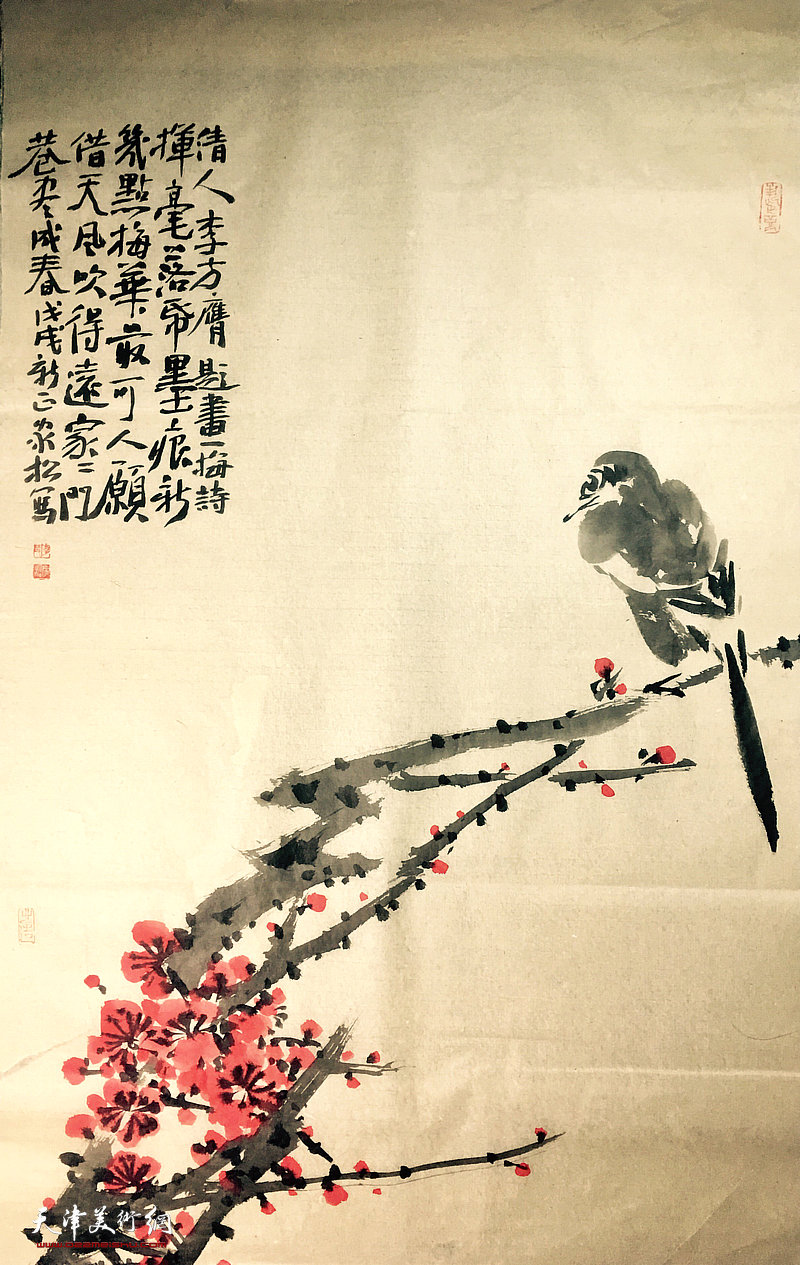 清人李方膺題畫梅詩
揮毫落帋墨痕新
幾點梅華最可人願
借天風吹得遠家〻門
巷尽成春戊戌新正家松寫
天津美術網